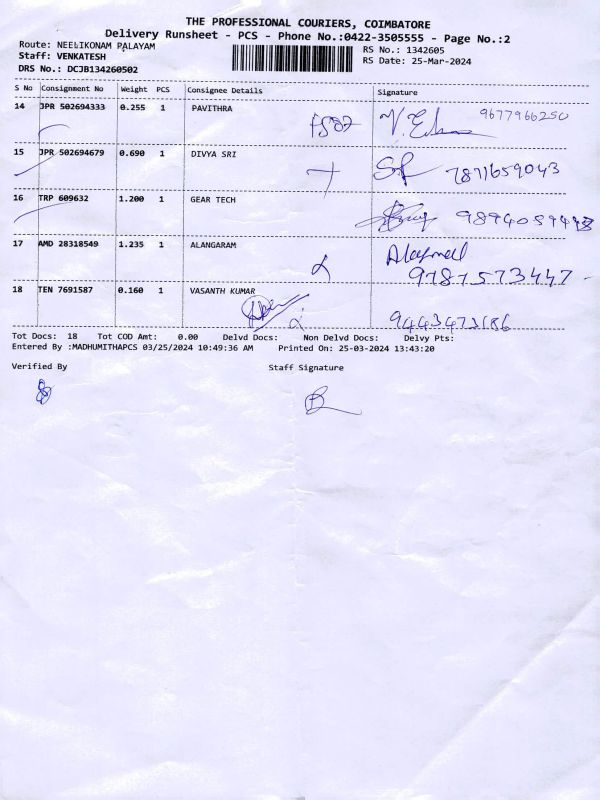 THE PROFESSIONAL COURIERS, COIMBATORE
Delivery Runsheet - PCS - Phone No.:0422-3505555 - Page No.:2
Route: NEELIKONAM PALAYAM RS No.: 1342605
Staff: VENKATESH RS Date: 25-Mar-2024
DRS No.: DCJB134260502
S No Consignment No Weight PCS Consignee Details Signature
14 JPR 502694333 0.255 1 PAVITHRA 9677966250
15 JPR 502694679 0.690 1 DIVYA SRI 7871659043
16 TRP 609632 1.200 1 GEAR TECH
17 AMD 28318549 1.235 1 ALANGARAM
9787573447
18 TEN 7691587 0.160 1 VASANTH KUMAR
9443473186
Tot Docs: 18 Tot COD Amt: 0.00 Delvd Docs: Non Delvd Docs: Delvy Pts:
Entered By :MADHUMITHAPCS 03/25/2024 10:49:36 AM Printed On: 25-03-2024 13:43:20
Verified By Staff Signature